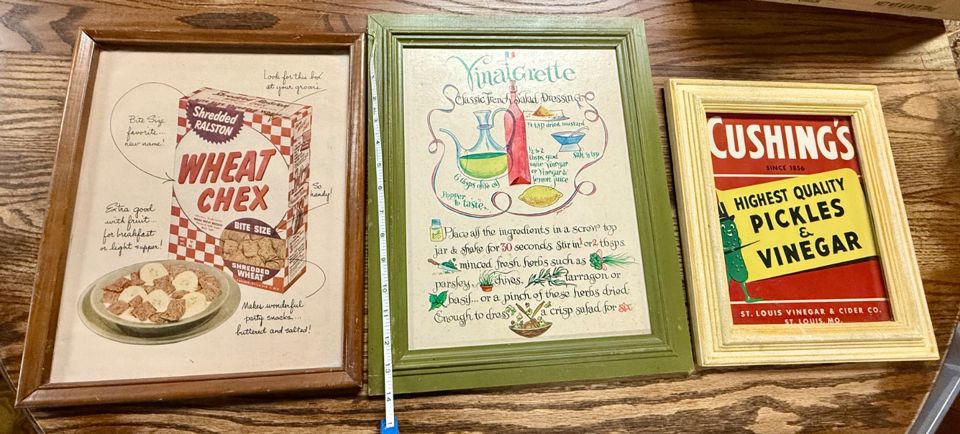 Look for this box
at your grocer's
Bite Size
favorite...
new name!
Shredded
RALSTON
WHEAT
CHEX
So
handy!
Extra good
with fruit...
for breakfast
or light supper!
BITE SIZE
SHREDDED
WHEAT
Makes wonderful
party snacks...
buttered and salted!
Vinaigrette
Classic French Salad Dressing
1/4 tsp dried mustard
Salt ½ tsp
1½ to 2
tbsps good
wine vinegar
or vinegar &
lemon juice
6 tbsps olive oil
Pepper
to taste
Place all the ingredients in a screw top
jar & shake for 30 seconds. Stir in 1 or 2 tbsps.
minced fresh herbs such as
parsley, chives, tarragon or
basil... or a pinch of these herbs dried.
Enough to dress a crisp salad for six.
CUSHING'S
SINCE 1856
HIGHEST QUALITY
PICKLES
&
VINEGAR
ST. LOUIS VINEGAR & CIDER CO.
ST. LOUIS, MO.
10
11
12
13
14